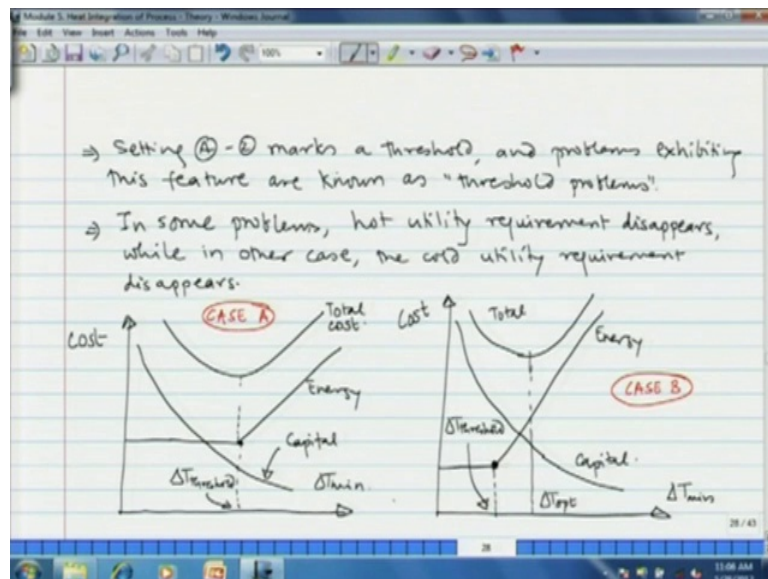 Module 5. Heat Integration of Process - Theory - Windows Journal
File Edit View Insert Actions Tools Help
100%
⇒ Setting Ⓐ - ② marks a threshold, and problems exhibiting
this feature are known as "threshold problems".
⇒ In some problems, hot utility requirement disappears,
while in other case, the cold utility requirement
disappears.
Cost
CASE A
Total
cost.
Energy
Capital
ΔTthreshold
ΔTmin.
Cost
Total
Energy
CASE B
ΔTthreshold
Capital.
ΔTopt
ΔTmin
28 / 43
28
11:06 AM